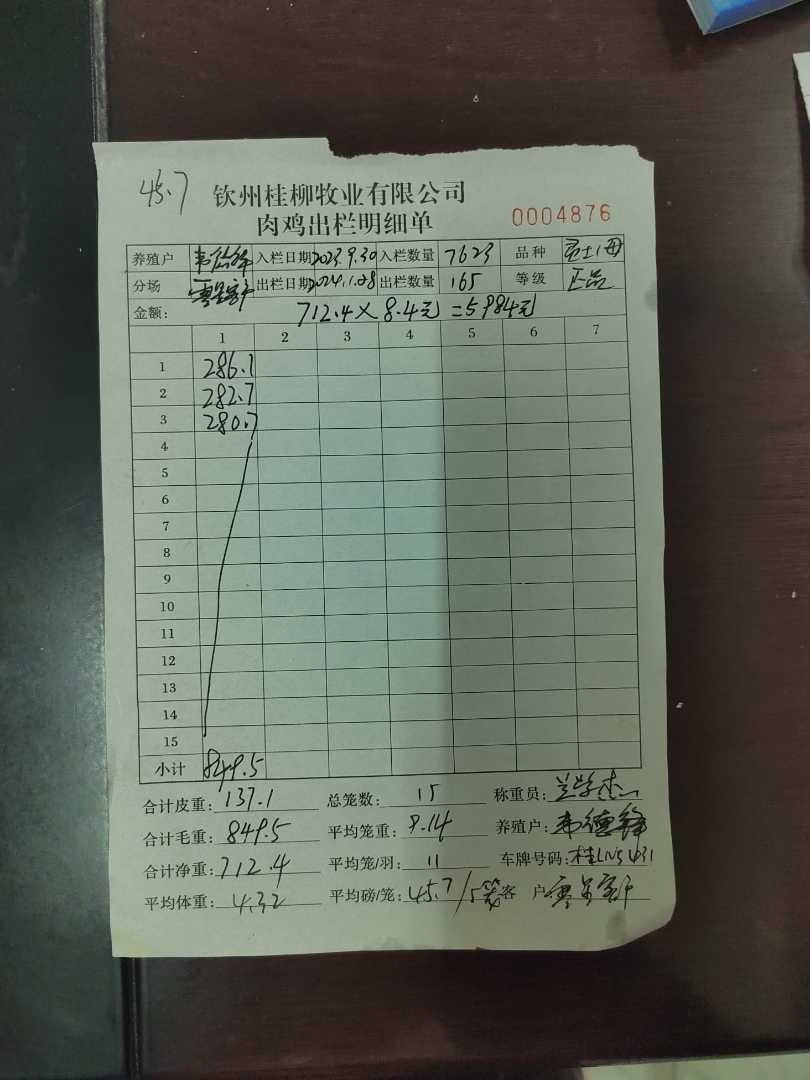 45.7
钦州桂柳牧业有限公司
肉鸡出栏明细单
0004876
养殖户 入栏日期 2023.9.30 入栏数量 7623 品种
分场 出栏日期 2024.1.28 出栏数量 165 等级 正品
金额: 712.4×8.4元=5984元
1 2 3 4 5 6 7
1 286.1
2 282.7
3 280.7
4
5
6
7
8
9
10
11
12
13
14
15
小计 849.5
合计皮重: 137.1 总笼数: 15 称重员:
合计毛重: 849.5 平均笼重: 9.14 养殖户: 韦德锋
合计净重: 712.4 平均笼/羽: 11 车牌号码: 桂LN5431
平均体重: 4.32 平均磅/笼: 45.7/5笼 客户